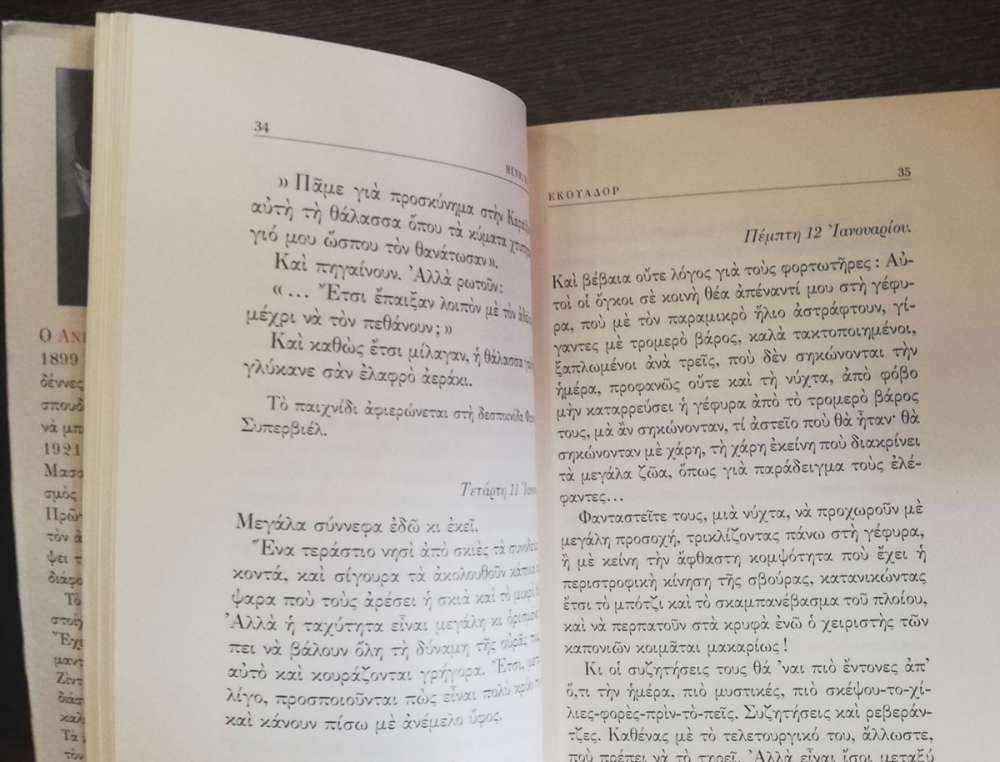 Ο ΑΝ
1899
δέννες
σπουδ
νὰ μπ
1921
Μασσ
σμὸς
Πρῶτ
τὸν ἀ
ψει τ
διάφο
Τὸ
στοίχ
Ἔχε
μαντ
Ζὶντ
διάσ
καλ
Τὰ
τὸν
34
HENRI
» Πᾶμε γιὰ προσκύνημα στὴν
αὐτὴ τὴ θάλασσα ὅπου τὰ κύματα
γιό μου ὥσπου τὸν θανάτωσαν».
Καὶ πηγαίνουν. Ἀλλὰ ρωτοῦν:
«… Ἔτσι ἔπαιξαν λοιπὸν μὲ τὸν
μέχρι νὰ τὸν πεθάνουν;»
Καὶ καθὼς ἔτσι μίλαγαν, ἡ θάλασσα
γλύκανε σὰν ἐλαφρὸ ἀεράκι.
Τὸ παιχνίδι ἀφιερώνεται στὴ δεσποινίδα
Συπερβιέλ.
Τετάρτη 11
Μεγάλα σύννεφα ἐδῶ κι ἐκεῖ.
Ἕνα τεράστιο νησὶ ἀπὸ σκιὲς τὰ
κοντά, καὶ σίγουρα τὰ ἀκολουθοῦν κάποια
ψαρα ποὺ τοὺς ἀρέσει ἡ σκιὰ καὶ τὸ
Ἀλλὰ ἡ ταχύτητα εἶναι μεγάλη κι
πει νὰ βάλουν ὅλη τὴ δύναμη τῆς οὐρᾶς
αὐτὸ καὶ κουράζονται γρήγορα. Ἔτσι,
λίγο, προσποιοῦνται πὼς εἶναι πολὺ
καὶ κάνουν πίσω μὲ ἀνέμελο ὕφος.
ΕΚΟΥΑΔΟΡ
35
Πέμπτη 12 Ἰανουαρίου.
Καὶ βέβαια οὔτε λόγος γιὰ τοὺς φορτωτῆρες : Αὐ-
τοὶ οἱ ὄγκοι σὲ κοινὴ θέα ἀπέναντί μου στὴ γέφυ-
ρα, ποὺ μὲ τὸν παραμικρὸ ἥλιο ἀστράφτουν, γί-
γαντες μὲ τρομερὸ βάρος, καλὰ τακτοποιημένοι,
ξαπλωμένοι ἀνὰ τρεῖς, ποὺ δὲν σηκώνονται τὴν
ἡμέρα, προφανῶς οὔτε καὶ τὴ νύχτα, ἀπὸ φόβο
μὴν καταρρεύσει ἡ γέφυρα ἀπὸ τὸ τρομερὸ βάρος
τους, μὰ ἂν σηκώνονταν, τί ἀστεῖο ποὺ θὰ ἦταν· θὰ
σηκώνονταν μὲ χάρη, τὴ χάρη ἐκείνη ποὺ διακρίνει
τὰ μεγάλα ζῶα, ὅπως γιὰ παράδειγμα τοὺς ἐλέ-
φαντες…
Φανταστεῖτε τους, μιὰ νύχτα, νὰ προχωροῦν μὲ
μεγάλη προσοχή, τρικλίζοντας πάνω στὴ γέφυρα,
ἢ μὲ κείνη τὴν ἄφθαστη κομψότητα ποὺ ἔχει ἡ
περιστροφικὴ κίνηση τῆς σβούρας, κατανικώντας
ἔτσι τὸ μπότζι καὶ τὸ σκαμπανέβασμα τοῦ πλοίου,
καὶ νὰ περπατοῦν στὰ κρυφὰ ἐνῶ ὁ χειριστὴς τῶν
καπονιῶν κοιμᾶται μακαρίως !
Κι οἱ συζητήσεις τους θά ᾿ναι πιὸ ἔντονες ἀπ᾿
ὅ,τι τὴν ἡμέρα, πιὸ μυστικές, πιὸ σκέψου-το-χί-
λιες-φορὲς-πρὶν-τὸ-πεῖς. Συζητήσεις καὶ ρεβεράν-
τζες. Καθένας μὲ τὸ τελετουργικό του, ἄλλωστε,
ποὺ πρέπει νὰ τὸ τηρεῖ. Ἀλλὰ εἶναι ἴσοι μεταξύ